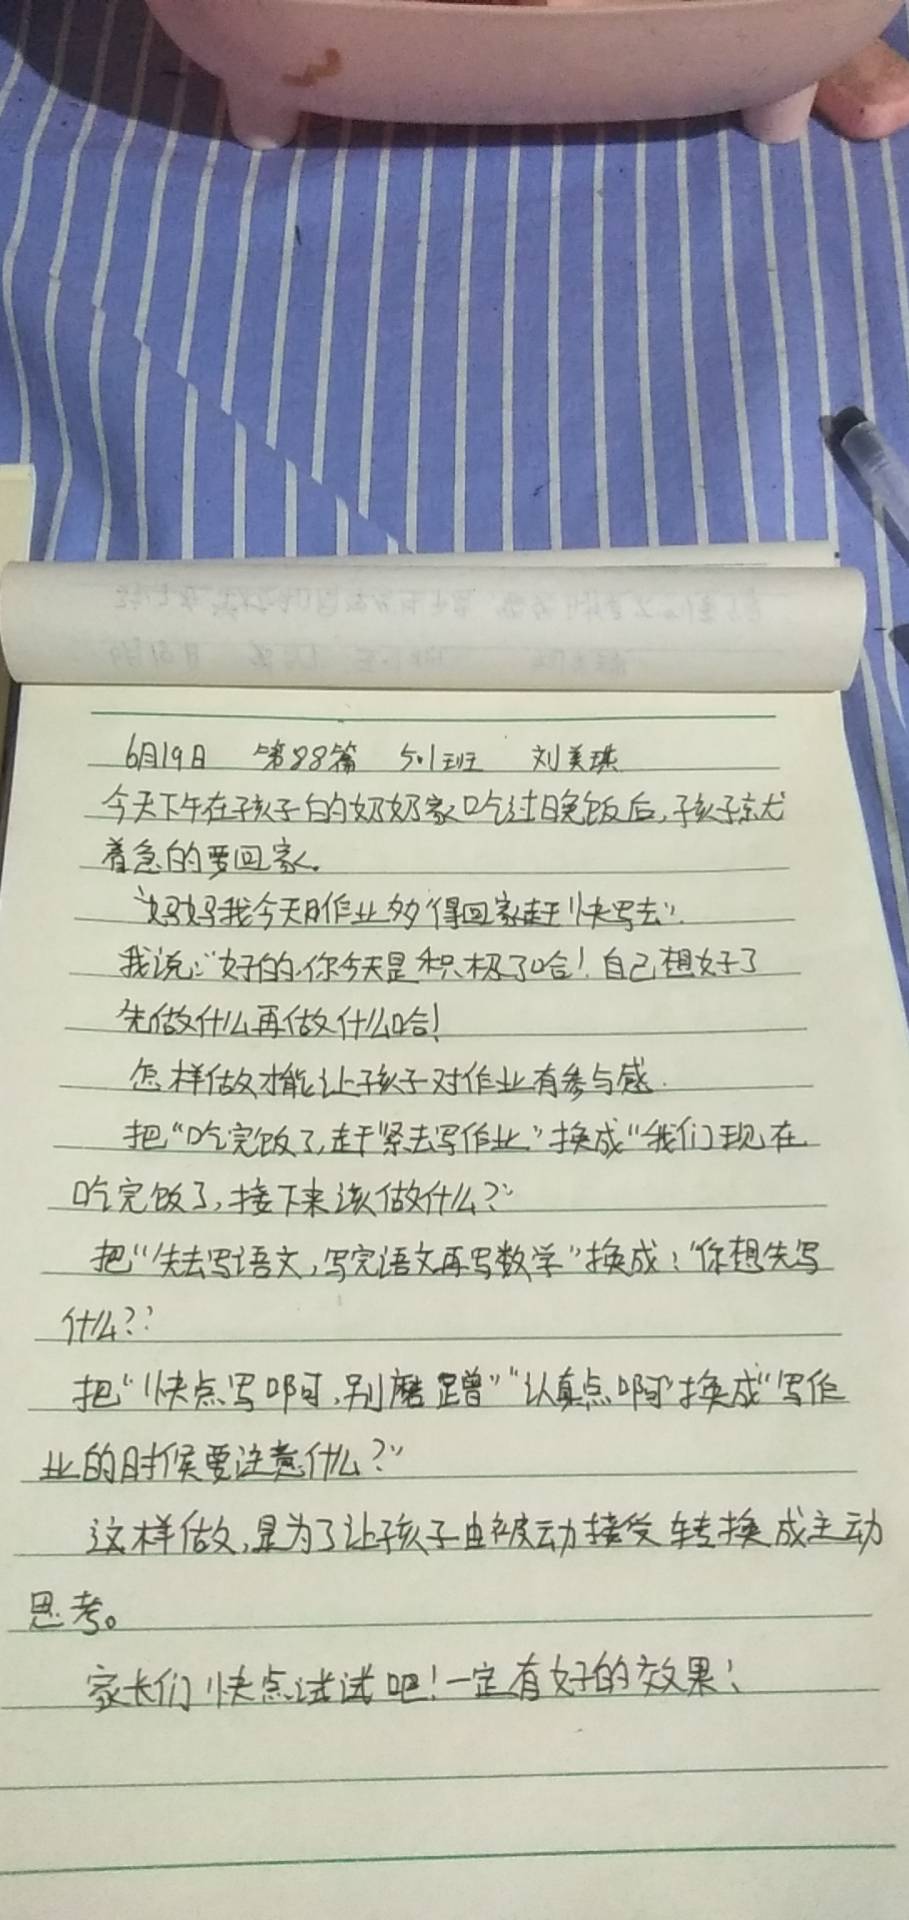 6月19日 第88篇 5.1班 刘美琪
今天下午在孩子的奶奶家吃过晚饭后,孩子就
着急的要回家。
“妈妈我今天作业多得回家赶快写去”.
我说:“好的.你今天是积极了哈!自己想好了
先做什么再做什么哈!
怎样做才能让孩子对作业有参与感.
把“吃完饭了,赶紧去写作业”换成“我们现在
吃完饭了,接下来该做什么?”
把“先去写语文,写完语文再写数学”换成:“你想先写
什么??
把“快点写啊,别磨蹭”“认真点啊”换成“写作
业的时候要注意什么?”
这样做,是为了让孩子由被动接受转换成主动
思考。
家长们快点试试吧!一定有好的效果!